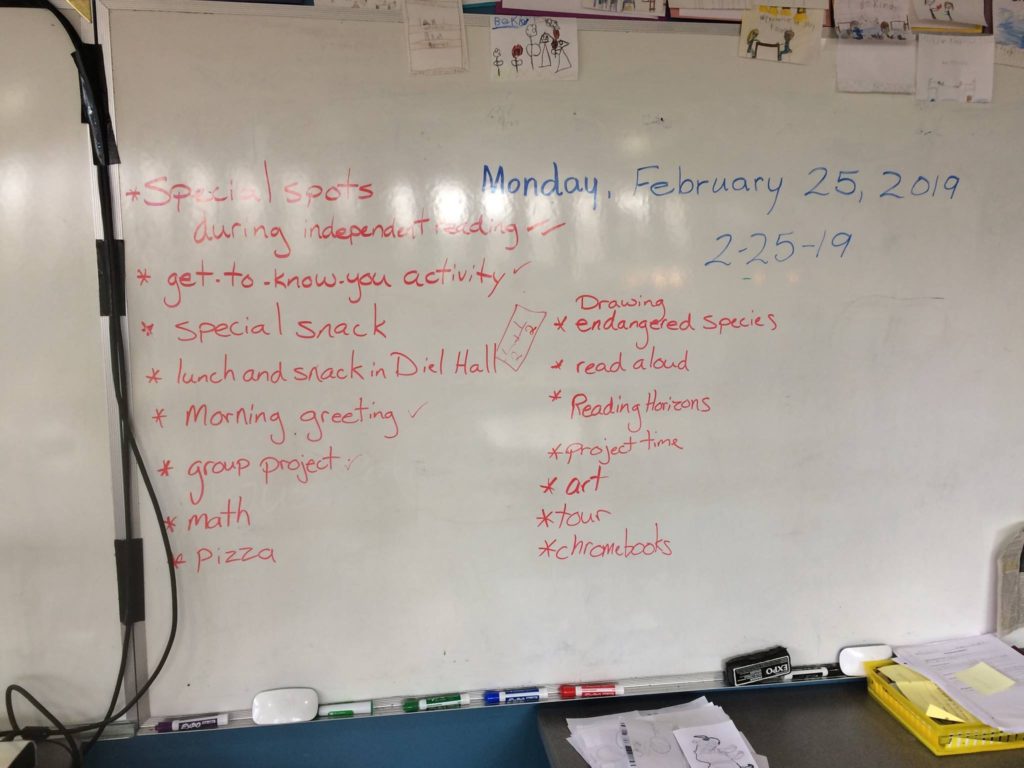 *Special spots
during independent reading ✓
* get-to-know-you activity ✓
* special snack
* lunch and snack in Diel Hall
* Morning greeting ✓
* group project ✓
* math
* pizza
Monday, February 25, 2019
2-25-19
Drawing
* endangered species
* read aloud
* Reading Horizons
* project time
* art
* tour
* chromebooks
EXPO